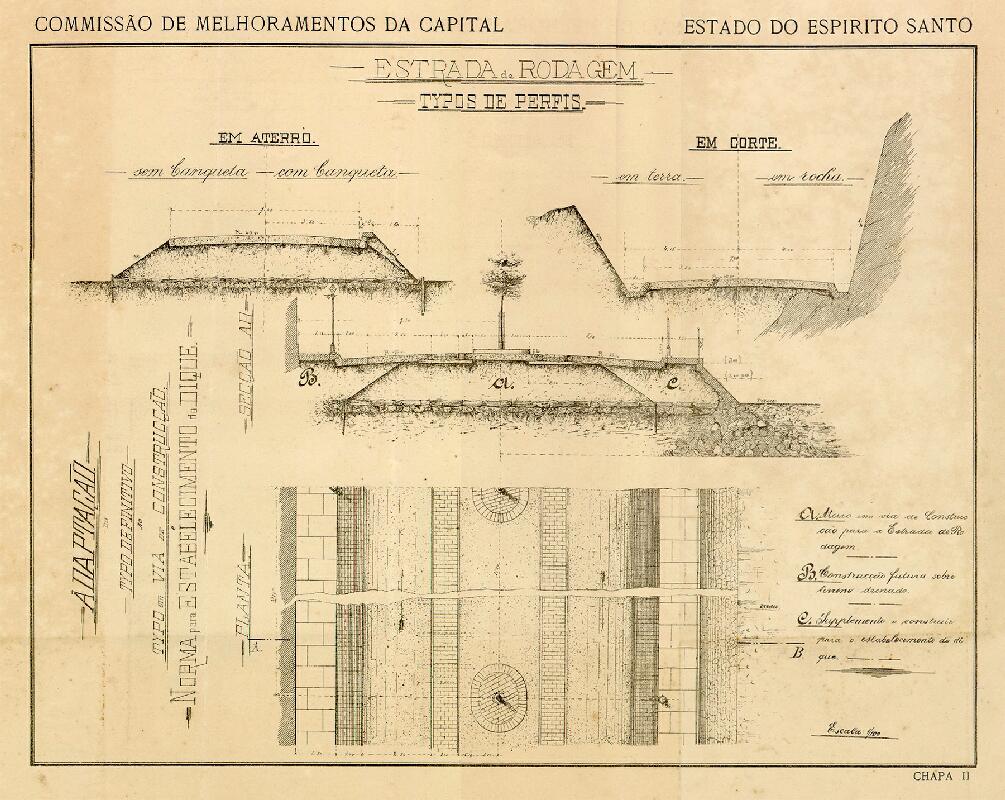 COMMISSÃO DE MELHORAMENTOS DA CAPITAL
ESTADO DO ESPIRITO SANTO
ESTRADA de RODAGEM
TYPOS DE PERFIS.
EM ATERRO.
sem banqueta — com banqueta.
EM CORTE.
em terra. em rocha.
B. A. C.
ADAPTAÇÃO
TYPO DEFINITIVO
TYPO em VIA de CONSTRUCÇÃO.
NORMA para ESTABELECIMENTO do DIQUE.
SECÇÃO AB
PLANTA
A
B
A. Massiço em via de Construc
ção para a Estrada de Ro
dagem
B. Construcção futura sobre
terreno drenado.
C. Supplemento a construir
para o estabelecimento do di
que.
Escala 1/100
CHAPA II